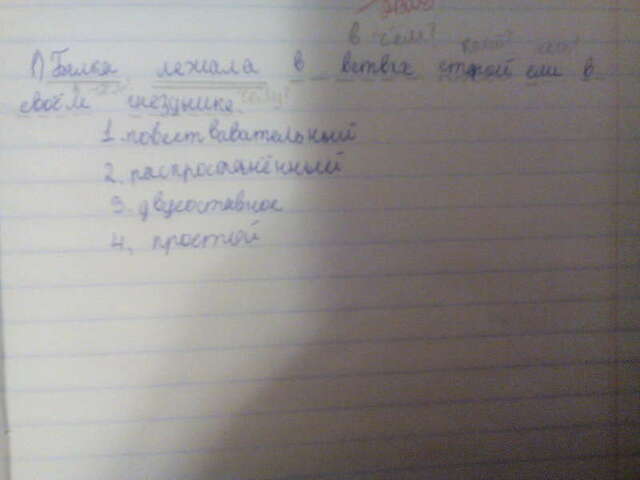 в чём? какой?
1) Белка лежала в ветвях старой ели в
своём гнёзднике. чему?
1. повествавательный
2. распространённый
3. двусоставное
4. простой